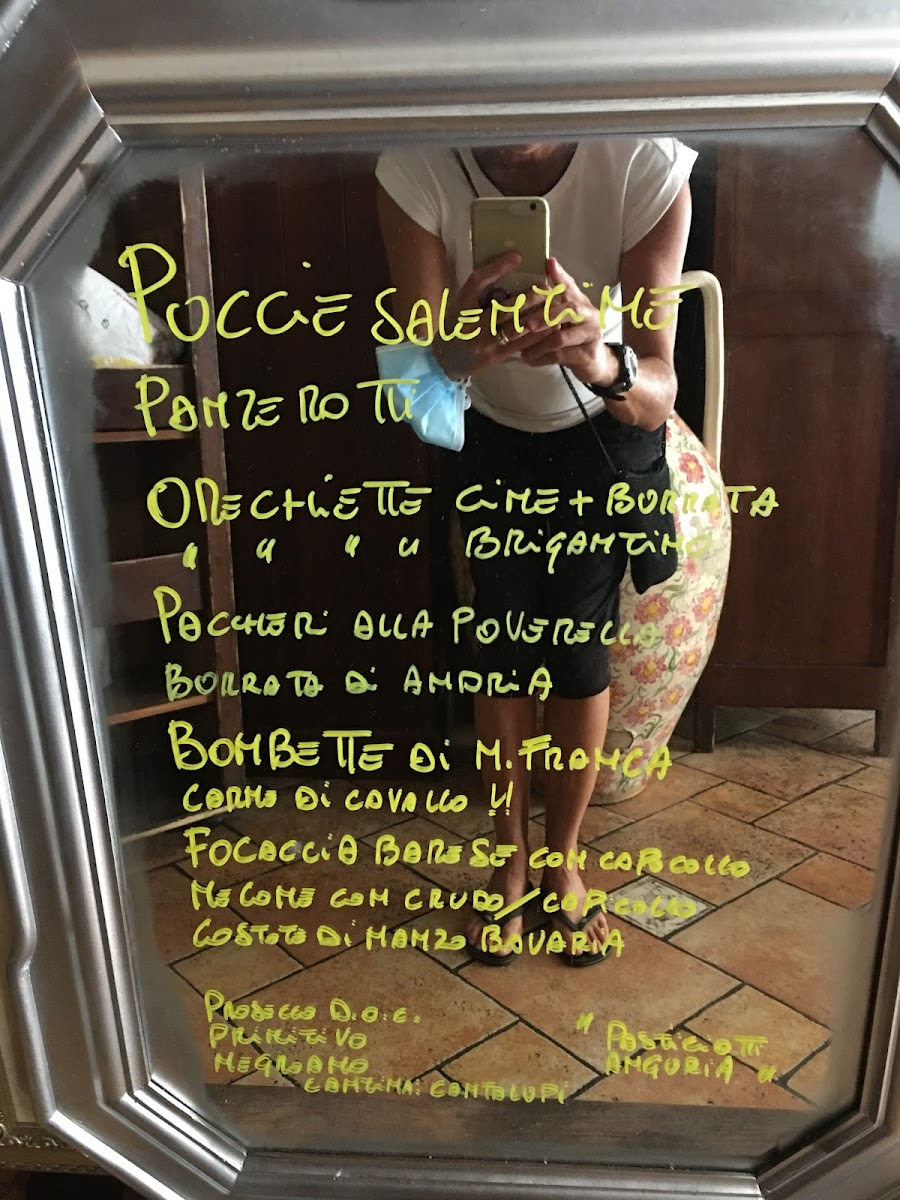 PUCCIE SALENTINE
PANZEROTTI
ORECHIETTE CIME + BURRATA
" " " " BRIGANTINO
PACCHERI ALLA POVERELLA
BURRATA DI ANDRIA
BOMBETTE DI M. FRANCA
CARNE DI CAVALLO !!
FOCACCIA BARESE CON CAPOCOLLO
MELONE CON CRUDO/CAPICOLLO
COSTATA DI MANZO BAVARIA
PROSECCO D.O.C.
PRIMITIVO
NEGROAMO
CANTINA: CANTALUPI
" PASTICIOTTI
ANGURIA "